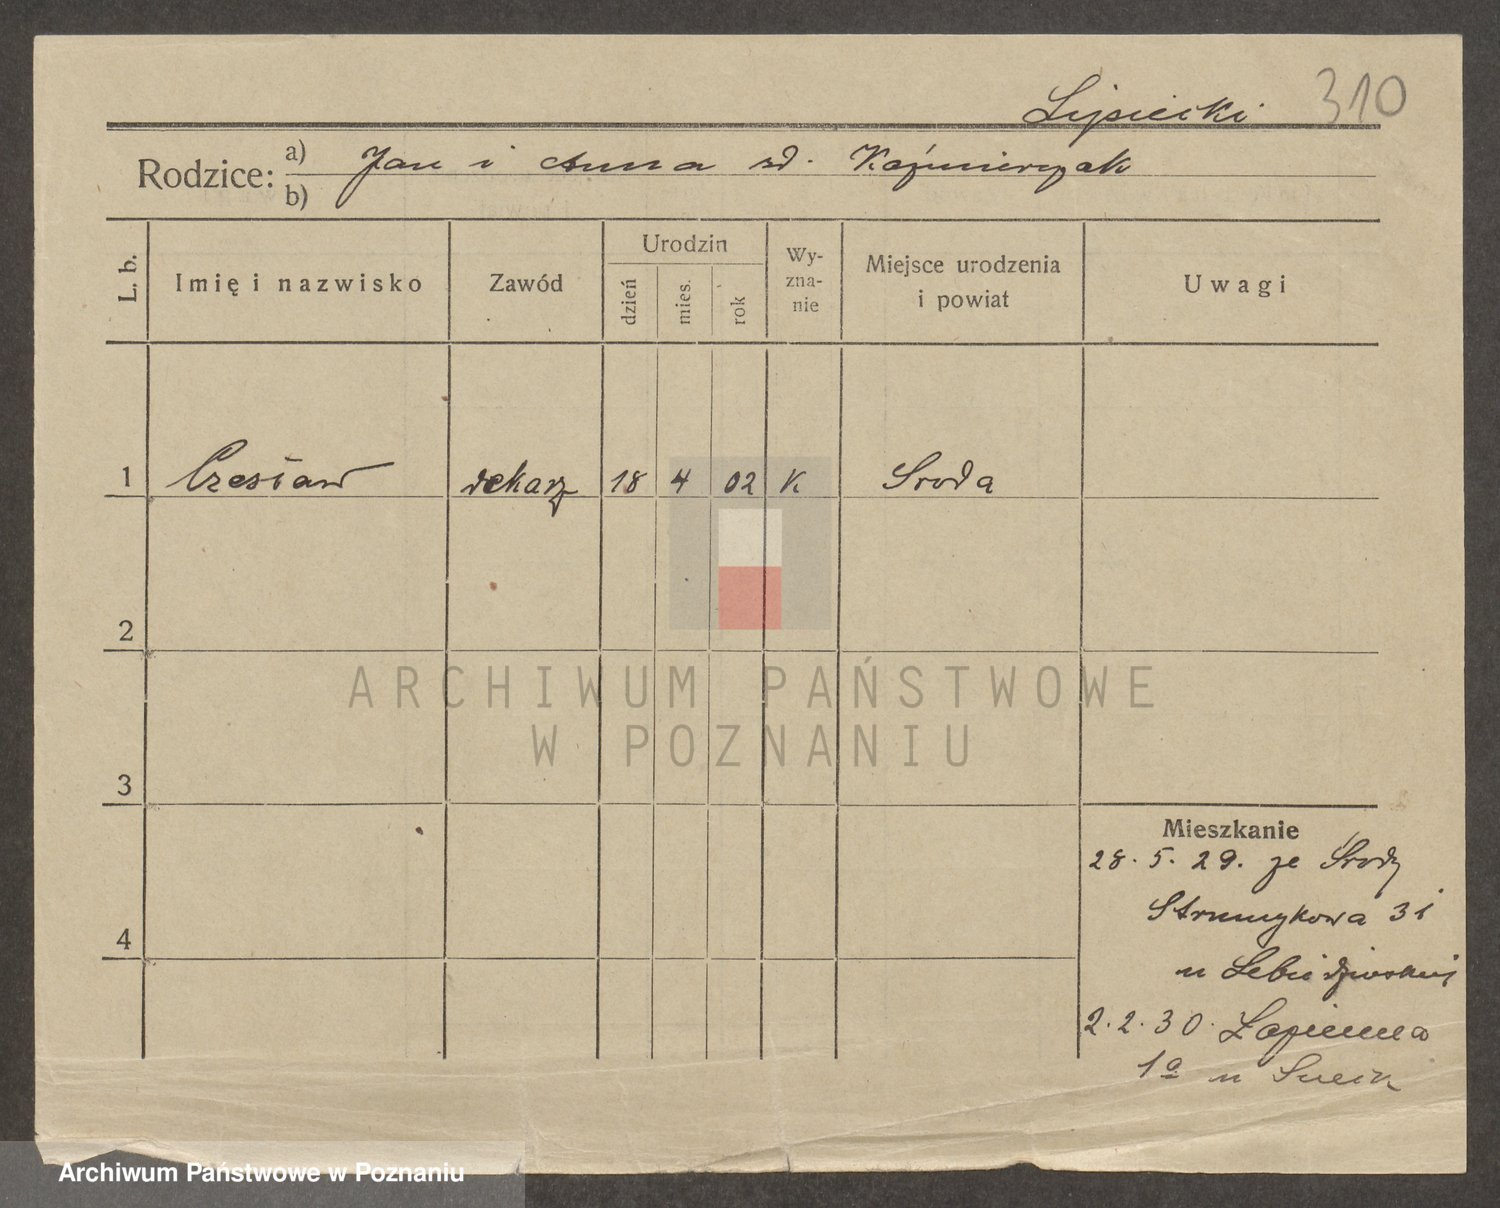 Lipiecki 310
Rodzice: a) Jan i Anna zd. Kaźmierczak
b)
L. b. Imię i nazwisko Zawód Urodzin dzień mies. rok Wyznanie Miejsce urodzenia i powiat Uwagi
1 Czesław dekarz 18 4 02 K Środa
2
ARCHIWUM PAŃSTWOWE
W POZNANIU
3
Mieszkanie
28. 5. 29. ze Środy
Strumykowa 31
4
u
2. 2. 30. Łazienna
1a u
Archiwum Państwowe w Poznaniu